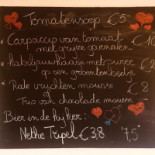 Tomatensoep €5
Carpaccio van tomaat
met grijze garnalen
Kabeljauwhaasje met puree
en groentenbedje
Rode vruchten mousse
Trio van chocolade mousse
Bier in de kijker:
Nethe Tripel €3,8 7,5°